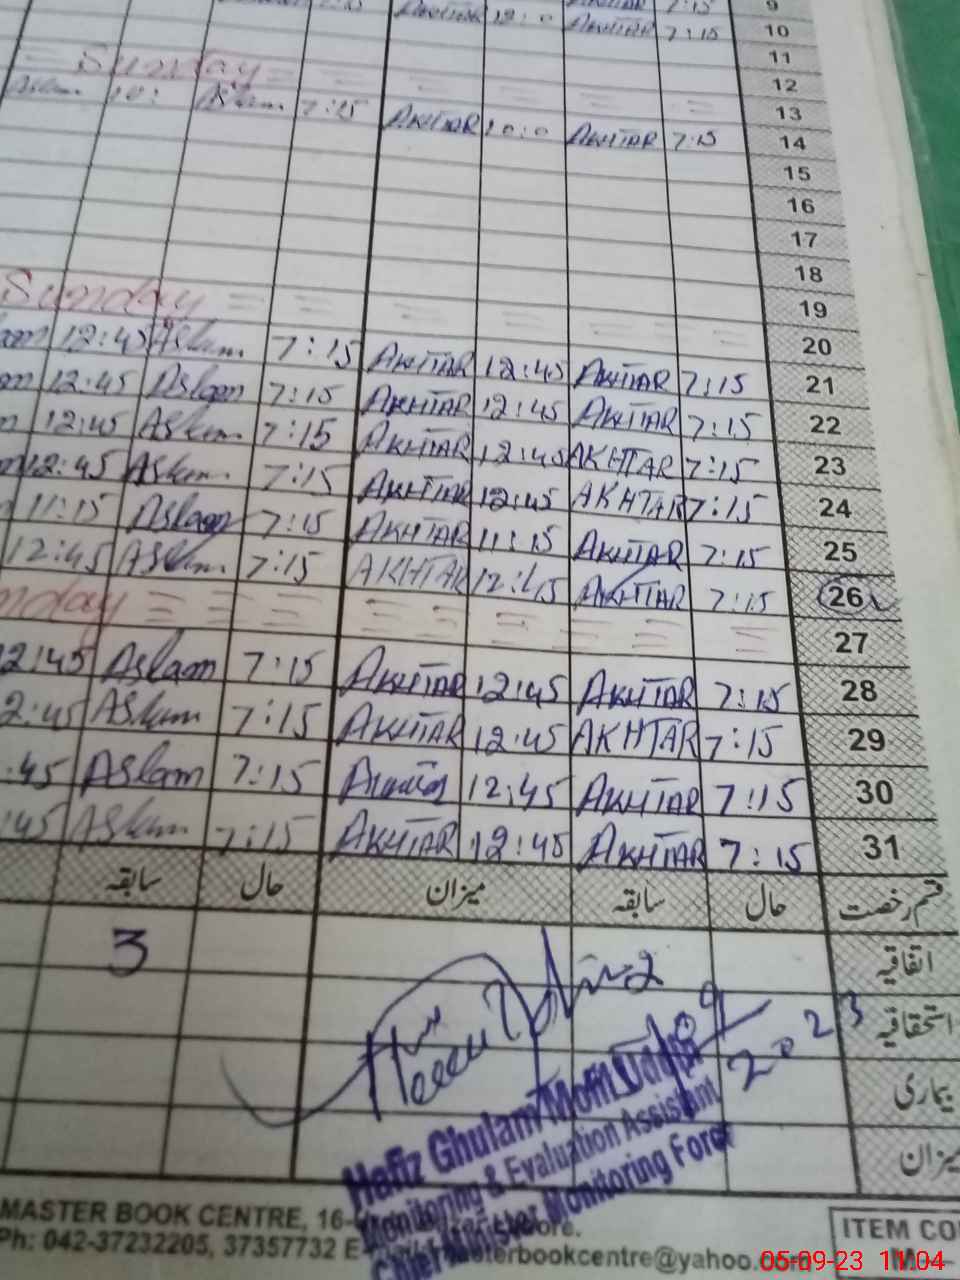 AKHTAR 12:0 AKHTAR 7:15 9
AKHTAR 7:15 10
11
Sunday 12
Aslam 10: Aslam 7:15 13
AKHTAR 10:0 AKHTAR 7:15 14
15
16
17
18
Sunday 19
20
12:45 Aslam 7:15 AKHTAR 12:45 AKHTAR 7:15 21
12:45 Aslam 7:15 AKHTAR 12:45 AKHTAR 7:15 22
12:45 Aslam 7:15 AKHTAR 12:45 AKHTAR 7:15 23
12:45 Aslam 7:15 AKHTAR 12:45 AKHTAR 7:15 24
11:15 Aslam 7:15 AKHTAR 11:15 AKHTAR 7:15 25
12:45 Aslam 7:15 AKHTAR 12:45 AKHTAR 7:15 26
nday 27
2:45 Aslam 7:15 AKHTAR 12:45 AKHTAR 7:15 28
2:45 Aslam 7:15 AKHTAR 12:45 AKHTAR 7:15 29
:45 Aslam 7:15 12:45 AKHTAR 7:15 30
:45 Aslam 7:15 AKHTAR 12:45 AKHTAR 7:15 31
قسم رخصت حال سابقہ میزان حال سابقہ
اتفاقیہ 3
استحقاقیہ
بیماری
میزان
2023
Hafiz Ghulam Mohi
Monitoring & Evaluation Assistant
Chief Minister Monitoring Force
MASTER BOOK CENTRE, 16-
Ph: 042-37232205, 37357732 E-mail: masterbookcentre@yahoo.com
ITEM CO
M
05-09-23 11:04